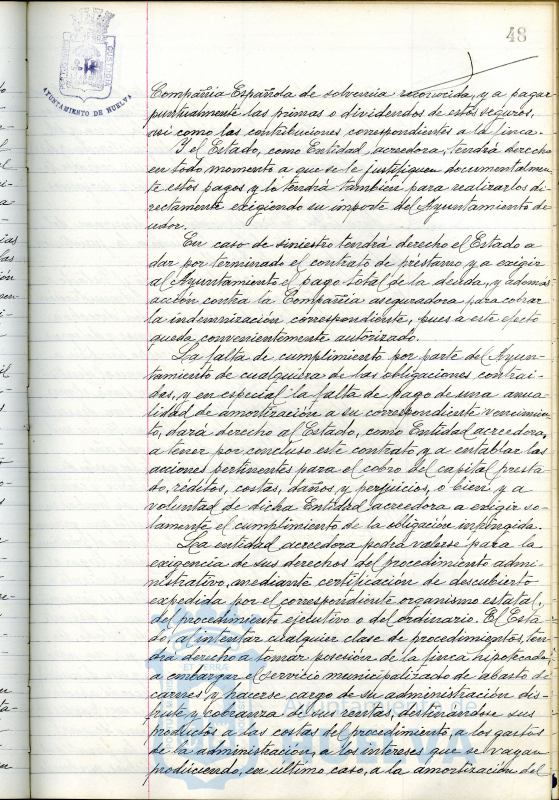 48
AYUNTAMIENTO DE HUELVA
Compañia Española de solvencia reconocida, y a pagar
puntualmente las primas o dividendos de estos seguros,
asi como las contribuciones correspondientes a la finca.
Y el Estado, como Entidad acreedora, tendrá derecho
en todo momento a que se le justifiquen documentalmen
te estos pagos, y lo tendrá también para realizarlos di-
rectamente exigiendo su importe del Ayuntamiento de
udor.
En caso de siniestro tendrá derecho el Estado a
dar por terminado el contrato de prestamo, y a exigir
al Ayuntamiento el pago total de la deuda, y además
acción contra la Compañia aseguradora para cobrar
la indemnización correspondiente, pues a este efecto
queda convenientemente autorizado.
La falta de cumplimiento por parte del Ayun-
tamiento de cualquiera de las obligaciones contrai-
das, y en especial la falta de pago de una anua-
lidad de amortización a su correspondiente vencimien-
to, dará derecho al Estado, como Entidad acreedora,
a tener por concluso este contrato, y a entablar las
acciones pertinentes para el cobro del capital presta
do, réditos, costas, daños, y perjuicios, o bien, y a
voluntad de dicha Entidad acreedora a exigir so-
lamente el cumplimiento de la obligación infringida.
La entidad acreedora podrá valerse para la
exigencia de sus derechos del procedimiento admi-
nistrativo, mediante certificación de descubierto
expedida por el correspondiente organismo estatal,
del procedimiento ejecutivo o del ordinario. El Esta-
do, al intentar cualquier clase de procedimientos, ten
drá derecho a tomar posesión de la finca hipotecada,
a embargar el servicio municipalizado de abasto de
carnes y hacerse cargo de su administración dis-
frute y cobranza de sus rentas, destinándose sus
productos a las costas del procedimiento, a los gastos
de la administración, a los intereses que se vayan
produciendo, en último caso, a la amortización del
Ayuntamiento de
HUELVA